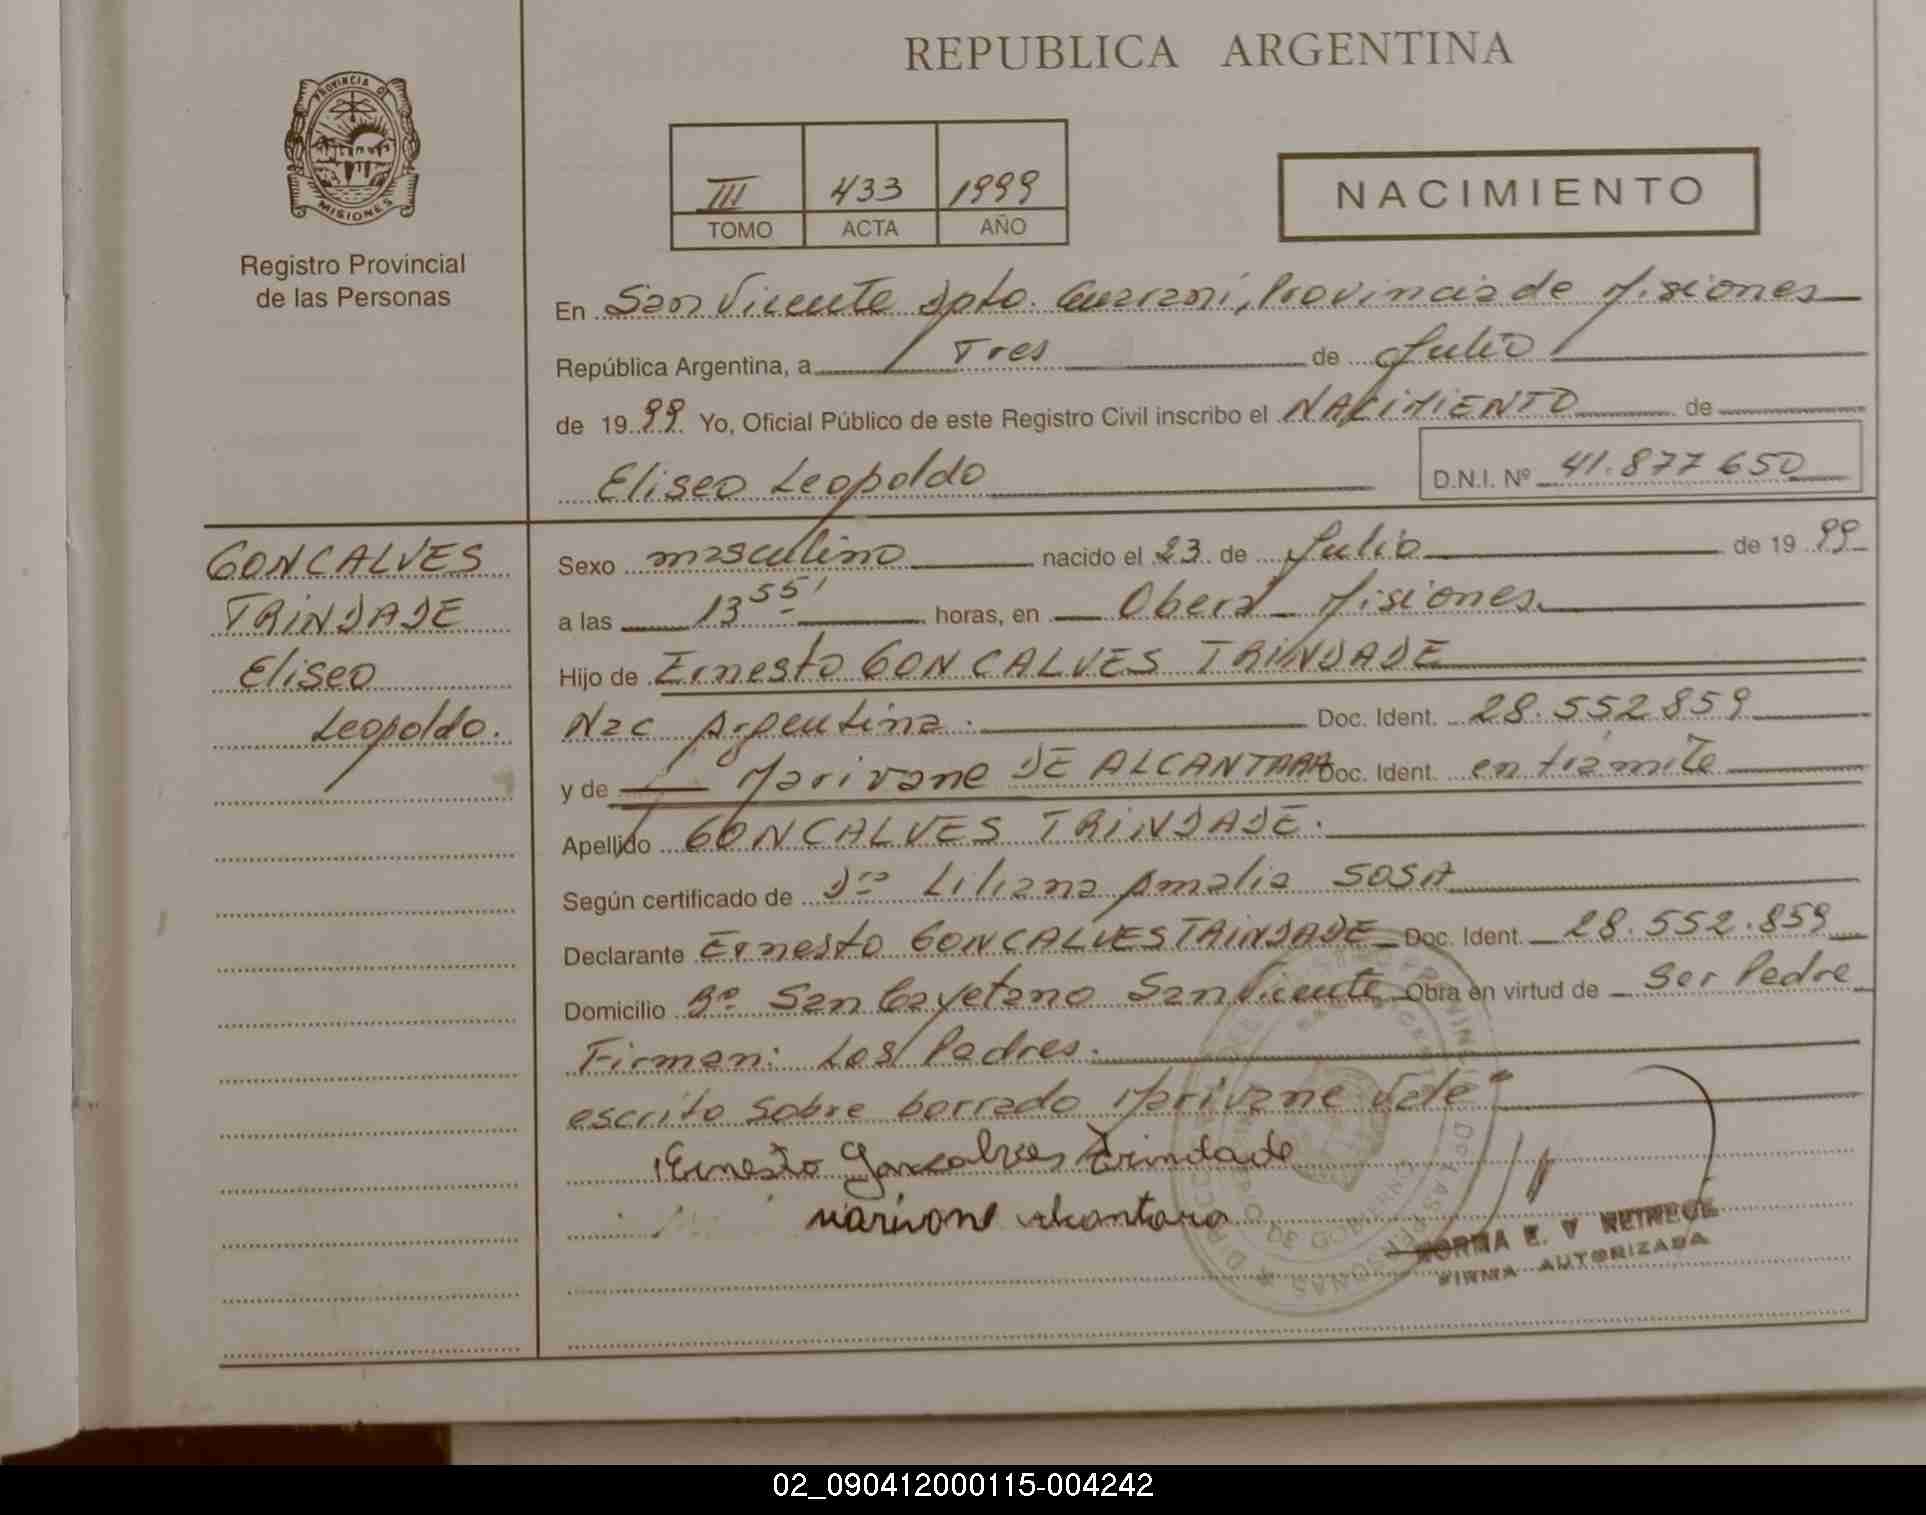 REPUBLICA ARGENTINA
PROVINCIA DE
MISIONES
Registro Provincial
de las Personas
III 433 1999
TOMO ACTA AÑO
NACIMIENTO
En San Vicente Dpto. Guaraní, Provincia de Misiones
República Argentina, a Tres de Julio
de 1999 Yo, Oficial Público de este Registro Civil inscribo el NACIMIENTO de
Eliseo Leopoldo D.N.I. Nº 41.877650
GONCALVES
TRINDADE
Eliseo
Leopoldo.
Sexo masculino nacido el 23 de Julio de 1999
a las 13 55' horas, en Oberá Misiones.
Hijo de Ernesto GONCALVES TRINDADE
Nac Argentina. Doc. Ident. 28.552859
y de Marivane DE ALCANTARA Doc. Ident. en trámite
Apellido GONCALVES TRINDADE.
Según certificado de Dra Liliana Amalia SOSA
Declarante Ernesto GONCALVES TRINDADE Doc. Ident. 28.552.859
Domicilio Bº San Cayetano San Vicente Obra en virtud de Ser Padre
Firman: Los Padres.
escrito sobre borrado Marivane Vale"
Ernesto Goncalves Trindade
marivone alcantara
NORMA E. V
FIRMA AUTORIZADA
02_090412000115-004242